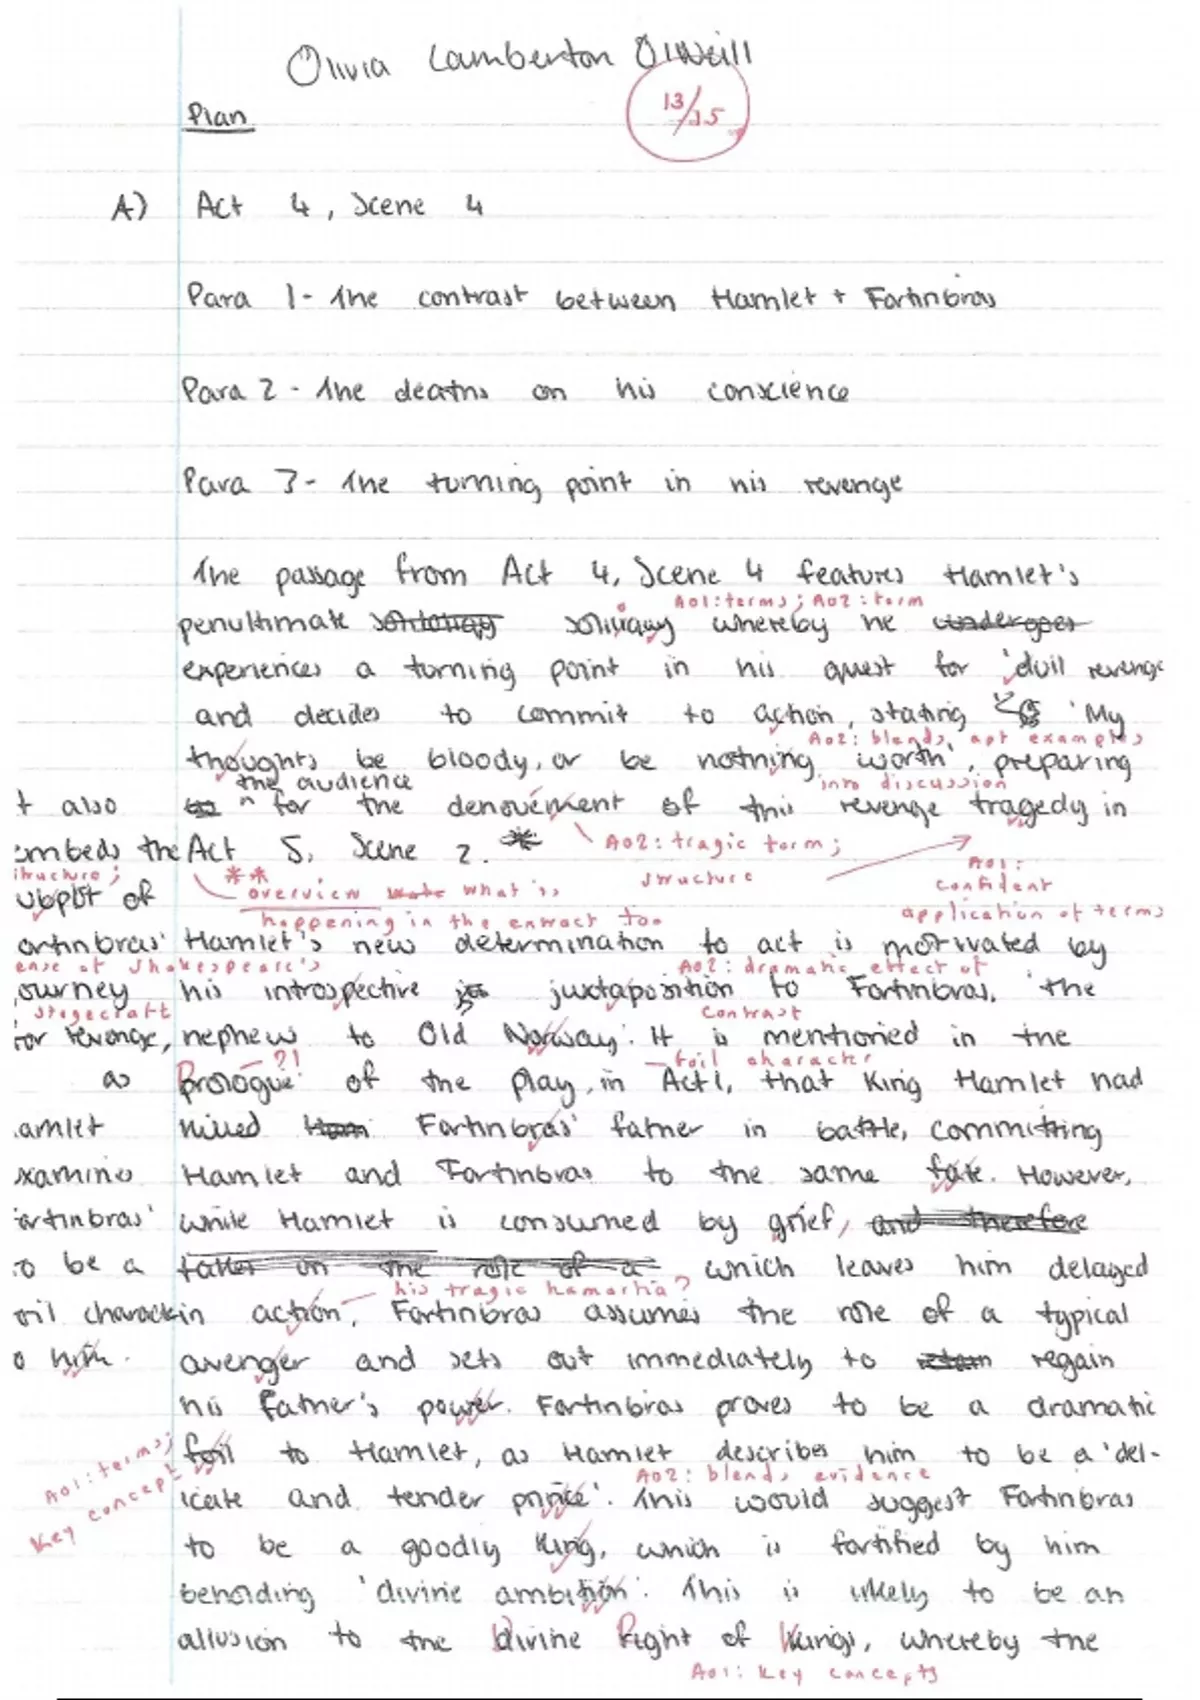 Olivia Lamberton O'Neill
13/15
Plan
A) Act 4, Scene 4
Para 1 - The contrast between Hamlet + Fortinbras
Para 2 - The deaths on his conscience
Para 3 - The turning point in his revenge
The passage from Act 4, Scene 4 features Hamlet's
AO1: terms; AO2: form
penultimate soliloquy whereby he undergoes
experiences a turning point in his quest for 'dull revenge
and decides to commit to action, stating 'My
AO2: blends apt examples
thoughts be bloody, or be nothing worth', preparing
the audience
into discussion
t also
^ for the denouement of this revenge tragedy in
embeds the
Act 5, Scene 2. *
AO2: tragic term;
structure
AO1:
confident
application of terms
structure;
** overview what is
happening in the extract too
ubplot of
ortinbras'
Hamlet's new determination to act is motivated by
ense of Shakespeare's
AO2: dramatic effect of
contrast
journey
his introspective juxtaposition to Fortinbras, the
stagecraft
for revenge,
nephew to Old Norway. It is mentioned in the
—?!
— foil character
as
prologue of the play, in Act 1, that King Hamlet had
amlet
killed Fortinbras' father in battle, committing
xamines
Hamlet and Fortinbras to the same fate. However,
ortinbras'
while Hamlet is consumed by grief, and therefore
to be a
takes on the role of a which leaves him delayed
his tragic hamartia?
oil character
in action, Fortinbras assumes the role of a typical
o him.
avenger and sets out immediately to regain
his father's power. Fortinbras proves to be a dramatic
AO1: terms;
key concept
foil to Hamlet, as Hamlet describes him to be a 'del-
AO2: blends evidence
icate and tender prince'. This would suggest Fortinbras
to be a goodly King, which is fortified by him
beholding 'divine ambition'. This is likely to be an
allusion to the Divine Right of Kings, whereby the
AO1: key concepts